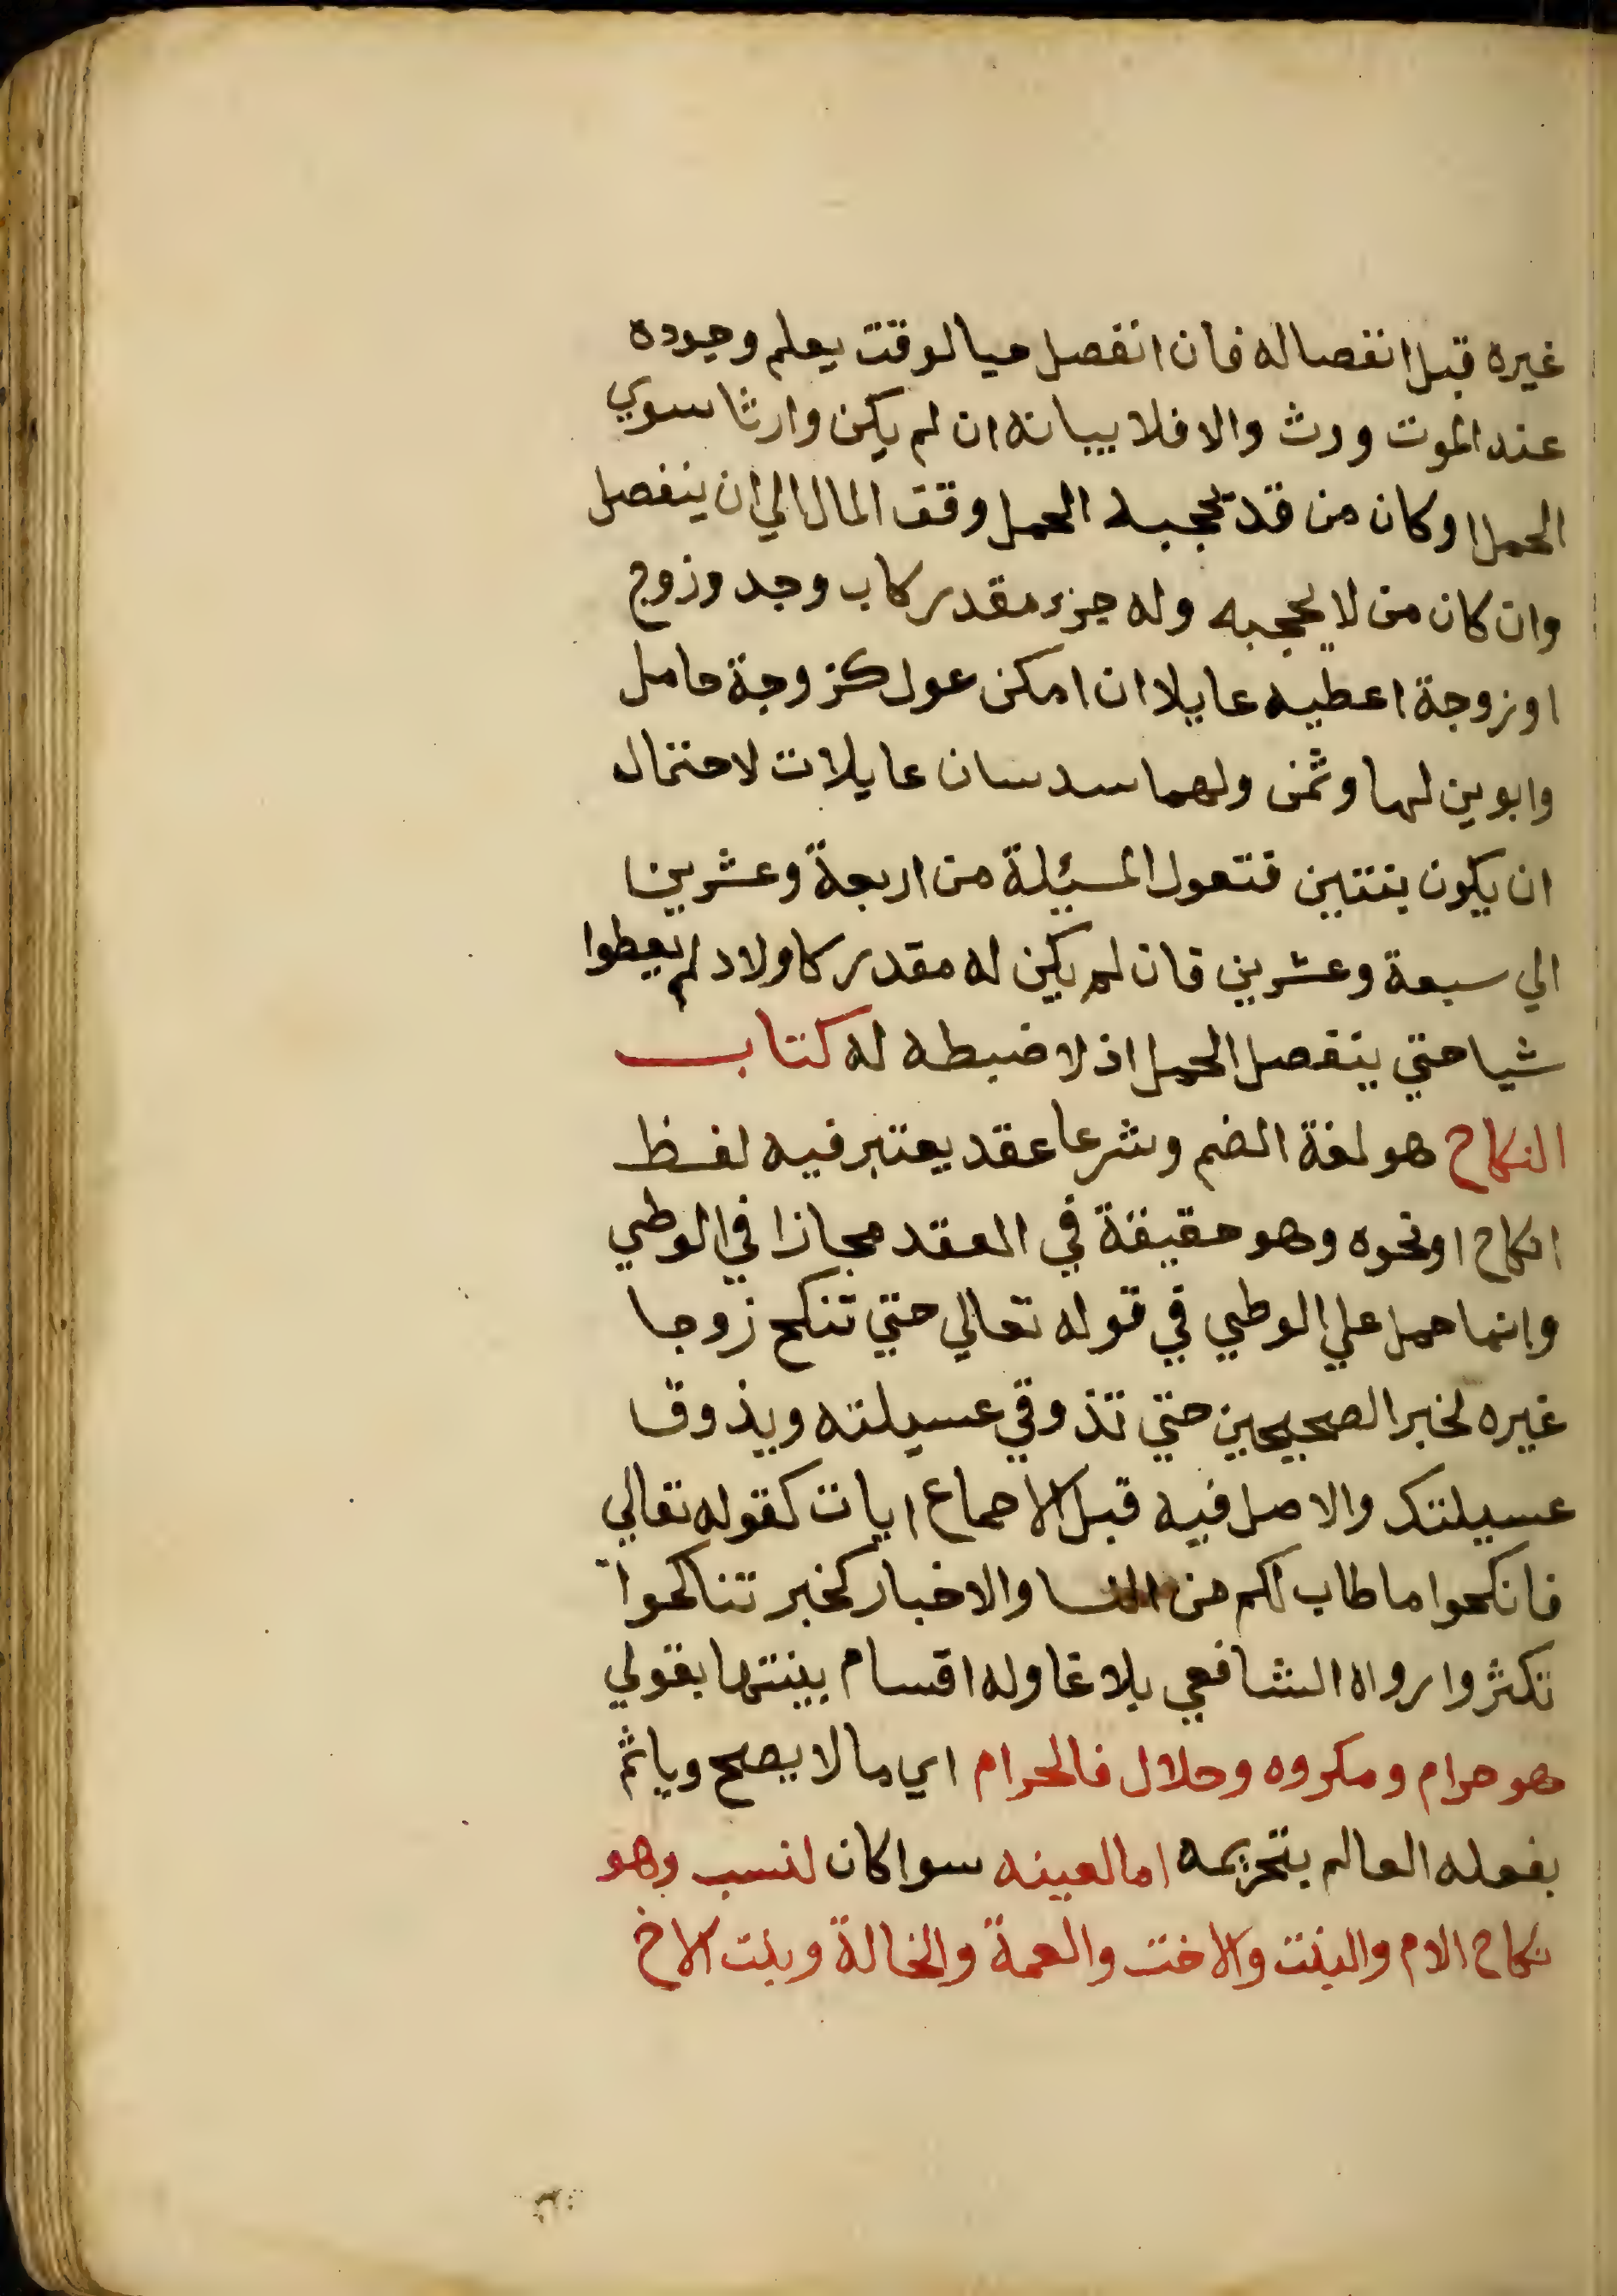 غيره قبل انفصاله فان انفصل حيا لوقت يعلم وجوده
عند الموت ورث والا فلا بيانه ان لم يكن وارثا سوي
الحمل او كان من قد يحجبه الحمل وقف المال الي ان ينفصل
وان كان من لا يحجبه وله جزء مقدر كاب وجد وزوج
او زوجة اعطيه عايلا ان امكن عول كزوجة حامل
وابوين لها وثمن ولهما سدسان عايلات لاحتمال
ان يكون بنتين فتعول المسئلة من اربعة وعشرين
الي سبعة وعشرين فان لم يكن له مقدر كاولاد لم يعطوا
شيا حتي ينفصل الحمل اذ لا ضبطه له كتاب
النكاح هو لغة الضم وشرعا عقد يعتبر فيه لفظ
انكاح او نحوه وهو حقيقة في العقد مجازا في الوطي
وانما حمل علي الوطي في قوله تعالي حتي تنكح زوجا
غيره لخبر الصحيحين حتي تذوقي عسيلته ويذوق
عسيلتك والاصل فيه قبل الاجماع ايات كقوله تعالي
فانكحوا ما طاب لكم من النسا والاخبار كخبر تناكحوا
تكثروا رواه الشافعي بلاغا وله اقسام بينتها بقولي
هو حرام ومكروه وحلال فالحرام اي ما لا يصح وياثم
بفعله العالم بتحريمه اما لعينه سوا كان لنسب وهو
نكاح الام والبنت والاخت والعمة والخالة وبنت الاخ